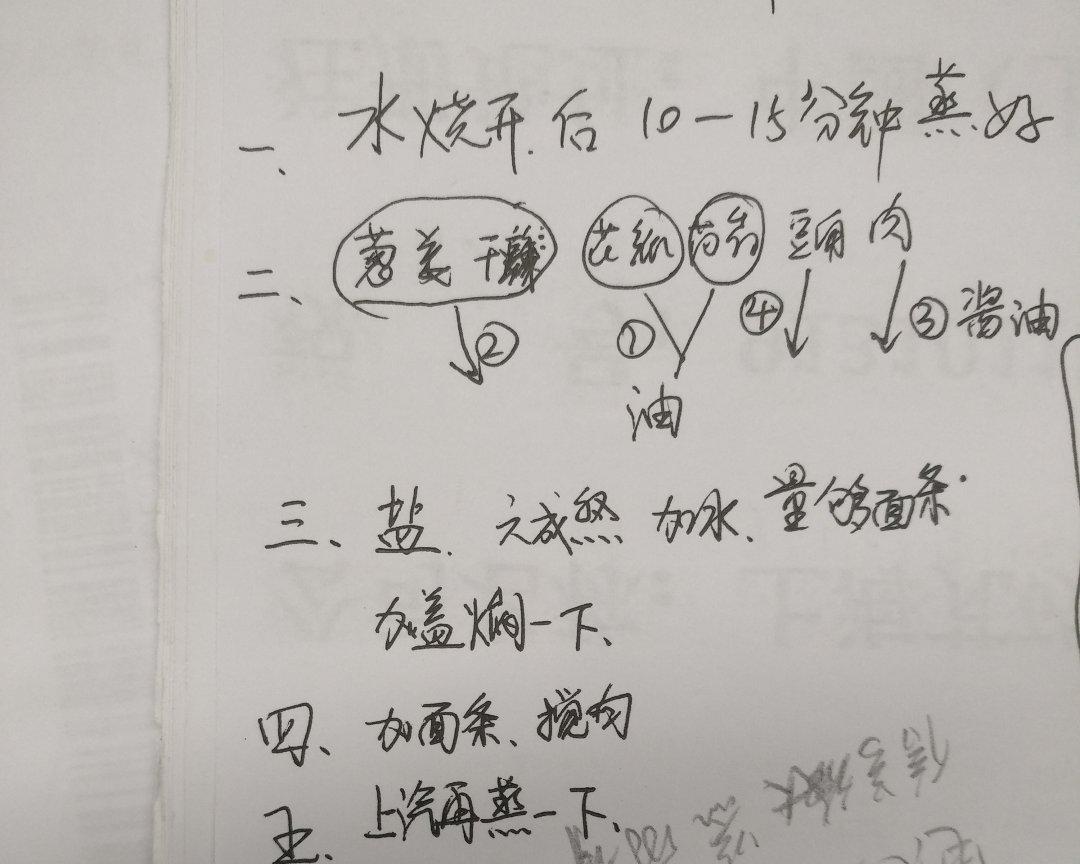 一、水烧开后10一15分钟蒸好
二、葱姜干辣 花 豆角 肉
② ① ④ ③酱油
油
三、盐、六成熟 加水、量够面条.
加盖焖一下、
四、加面条、搅匀
五、上汽再蒸一下、